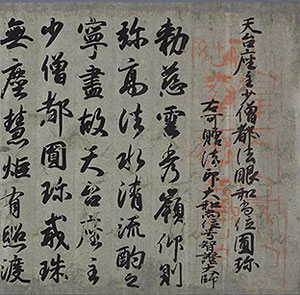 天台座主少僧都法眼和尚位圓珎
右可贈法印大和尚位号智證大師
勅慈雲秀嶺仰則
弥高法水清流酌之
寧盡故天台座主
少僧都圓珎戒珠
無塵慧炬有照渡